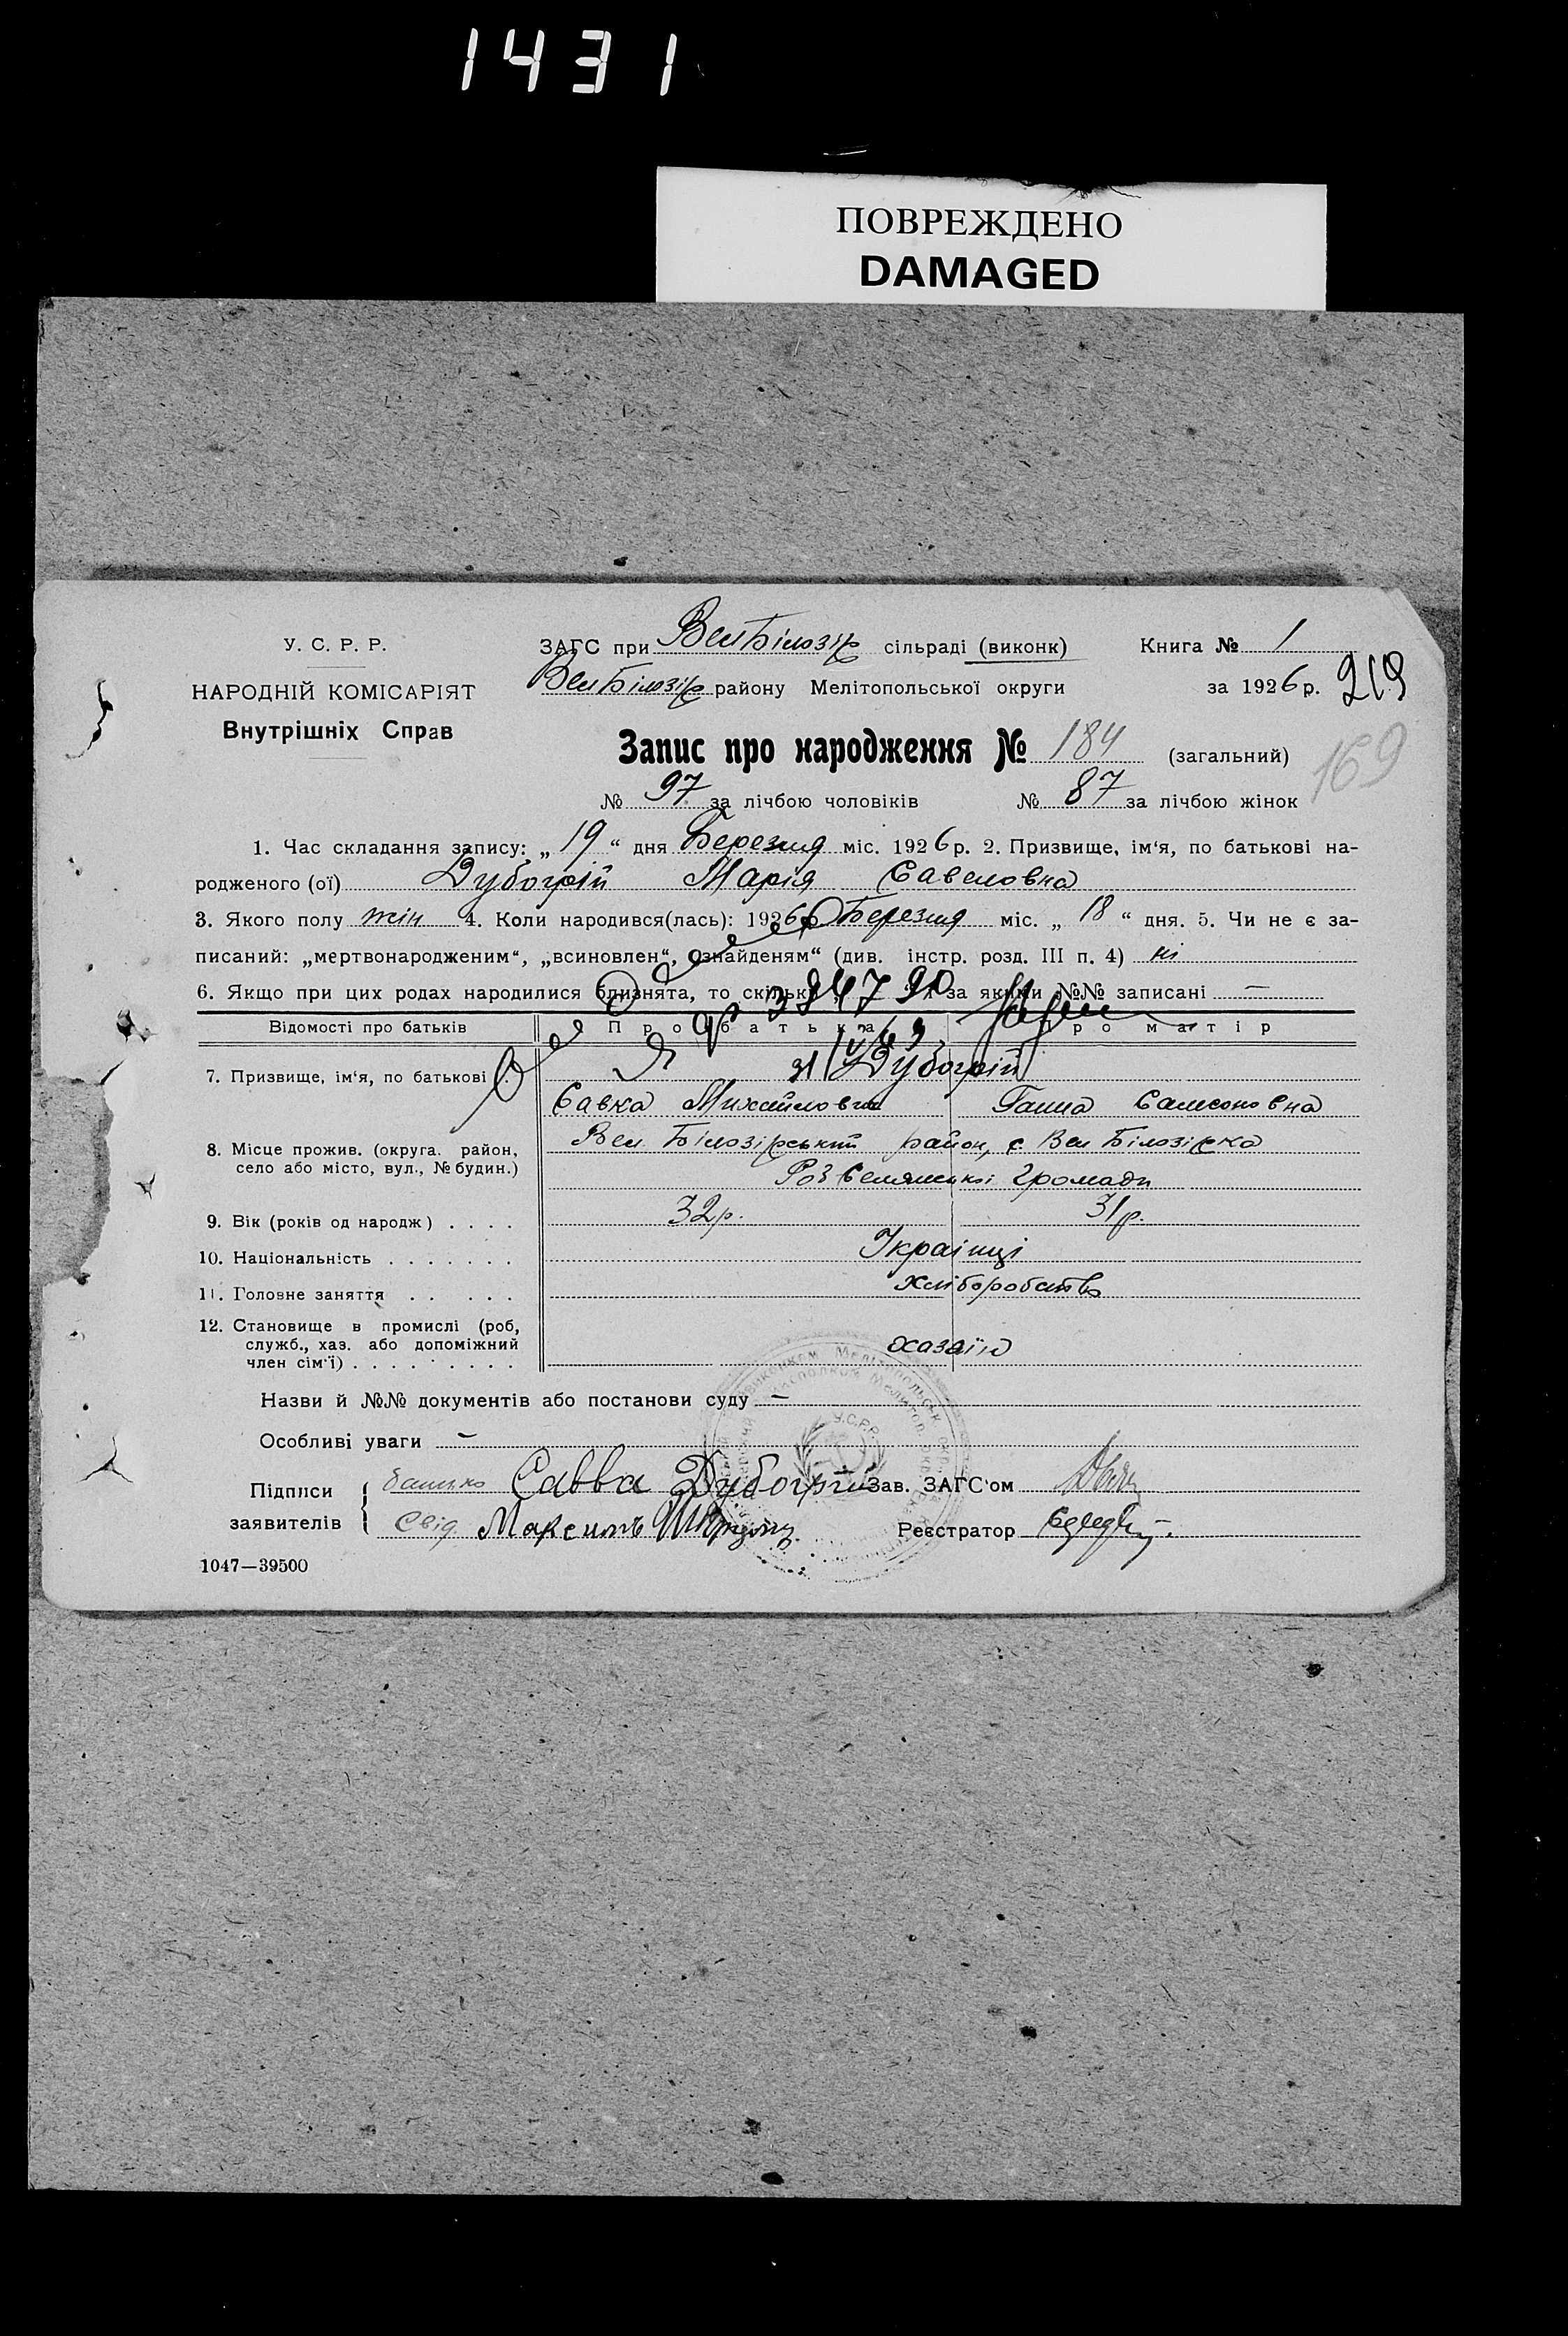 1431
ПОВРЕЖДЕНО
DAMAGED
У. С. Р. Р.
НАРОДНІЙ КОМІСАРІЯТ
Внутрішніх Справ
ЗАГС при ВелБілозір сільраді (виконк) Книга № 1
ВелБілозір району Мелітопольської округи за 1926 р. 219
Запис про народження № 184 (загальний) 169
№ 97 за лічбою чоловіків № 87 за лічбою жінок
1. Час складання запису: „19“ дня Березня міс. 1926 р. 2. Призвище, ім‘я, по батькові на-
родженого (ої) Дубогрій Марія Савеловна
3. Якого полу жін 4. Коли народився(лась): 1926 р Березня міс. „ 18 “ дня. 5. Чи не є за-
писаний: „мертвонародженим“, „всиновлен“, „знайденям“ (див. інстр. розд. III п. 4) ні
6. Якщо при цих родах народилися близнята, то скільки за якими №№ записані —
Відомості про батьків Про батька Про матір
7. Призвище, ім‘я, по батькові Дубогрій
Савка Михайлович Ганна Самсоновна
8. Місце прожив. (округа. район, село або місто, вул., № будин.) Вел Білозірський район, с Вел Білозірка
громади
9. Вік (років од народж) . . . . 32 р. 31 р.
10. Національність . . . . . . . Українці
11. Головне заняття . . . . . хліборобство
12. Становище в промислі (роб, служб., хаз. або допоміжний член сім‘ї) . . . . . . . . . хазаїн
Назви й №№ документів або постанови суду —
Особливі уваги —
Підписи заявителів { батько Савва Дубогрій Зав. ЗАГС‘ом
Свід Максимъ Реєстратор
1047—39500